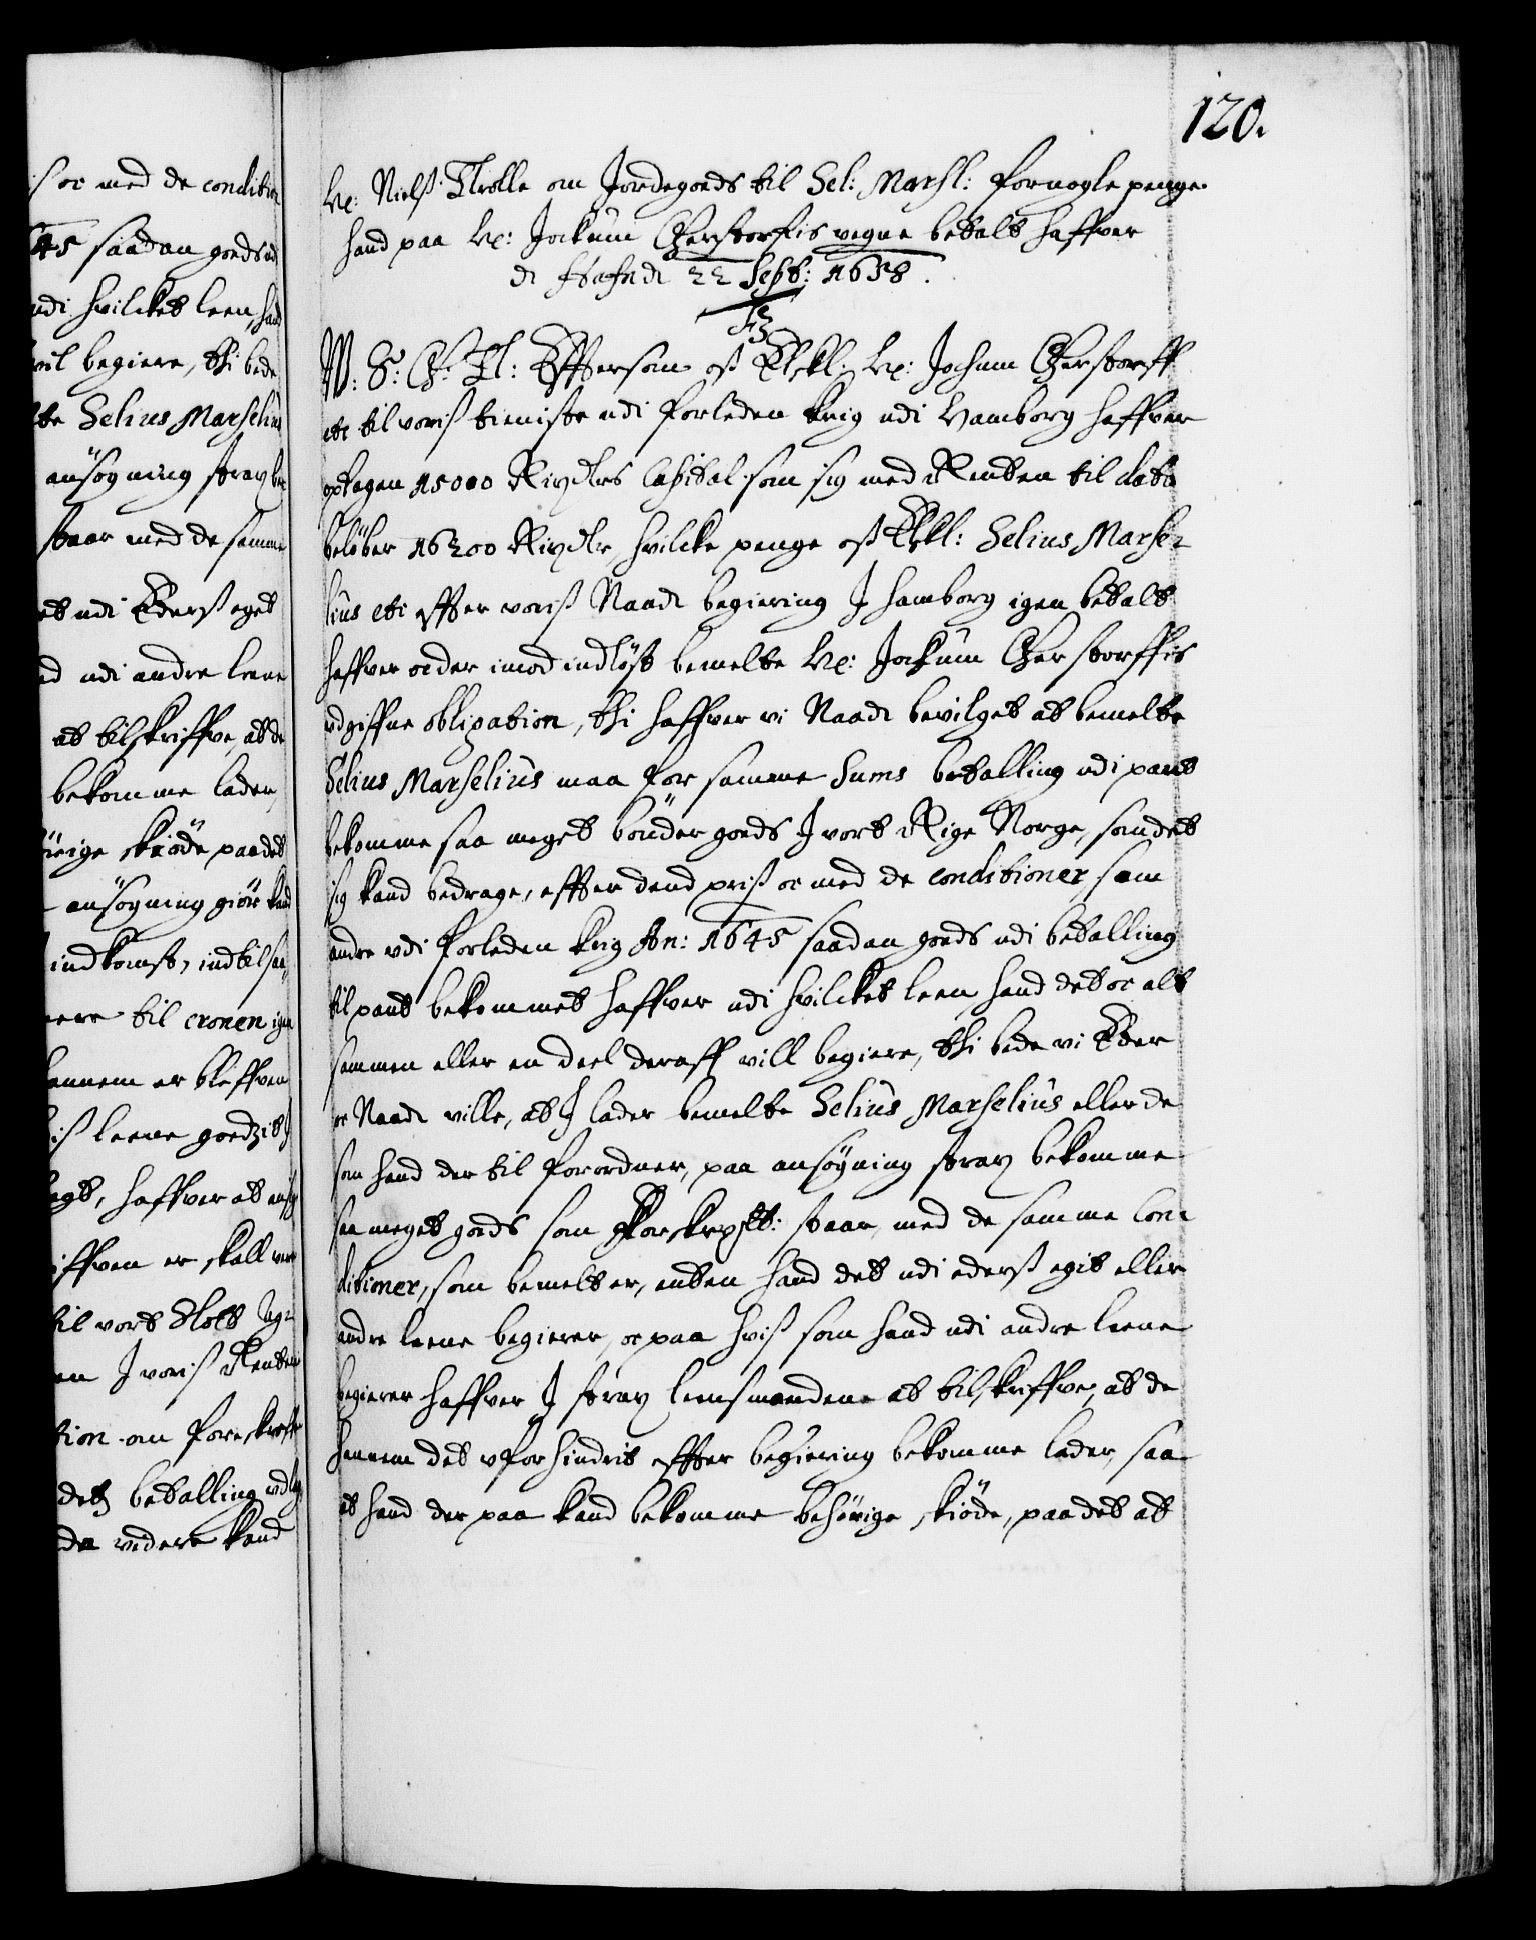 120.
is oc med de condition
645 saadan goeds ud
udi hvilcket leen, hand
vil begiere, thi bede
te Selius Marselius
ansögning strax be
staar med de samme
et udi Eders eget
d udi andre leene
at tilskriffve, at de
bekomme lader,
örige skiöde paa det
ansögning giör kand
indkomst, indtil saa
ere til cronen igen
hannem er bleffven
is leene goedzit
legt, haffver at ansög
iffven er skall vere
til vort Slott Ag-
en J voris Rente
tion om foreskreffne
detz betalling udlag
da videre kand
Hr: Nielß Trolle om Jordegoeds til Sel: Marsl: for nogle penge
hand paa Hr: Jochum Gerstorfis vegne betalt haffver
di Hafndi 22 Sept: 1658.
F3
W: S: G: T: Effterson oß Elskl: Hr: Jochum Gerstorff
etc til voris tieniste udi forleden krig udi Hamborg haffver
optagen 15000 Rixdlrs Capital som sig med Renten til dato
belöber 16200 Rixdlr, hvilcke penge oß Elskl: Selius Marse-
lius etc effter voris Naadi begiering J Hamborg igen betalt
haffver oc der imod indlöst bemelte Hr: Jochum Gerstorffis
udgiffne obligation, thi haffver vi Naadi bevilget at bemelte
Selius Marselius maa for samme Sums betalling udi pant
bekomme saa meget bönder goeds J vort Rige Norge, som det
sig kand bedrage, effter dend priß oc med de conditioner som
andre udi forleden krig An: 1645 saadan goeds udi betalling
til pant bekommet haffver udi hvilcket leen hand det oc alt
sammen eller en deel deraff vill begiere, thi bede vi Eder
oc Naadi ville, at J lader bemelte Selius Marselius eller de
som hand der til forordner, paa ansögning strax bekomme
saa meget goeds som forskrefft: staar, med de samme Con-
ditioner, som bemelt er, enten hand det udi Ederß eget eller
andre leene begierer, oc paa hviß som hand udi andre leene
begierer haffver J strax leensmendene at tilskriffve, at de
hannem det uforhindrit effter begiering bekomme lader, saa
at hand der paa kand bekomme behörige skiöde, paa det at